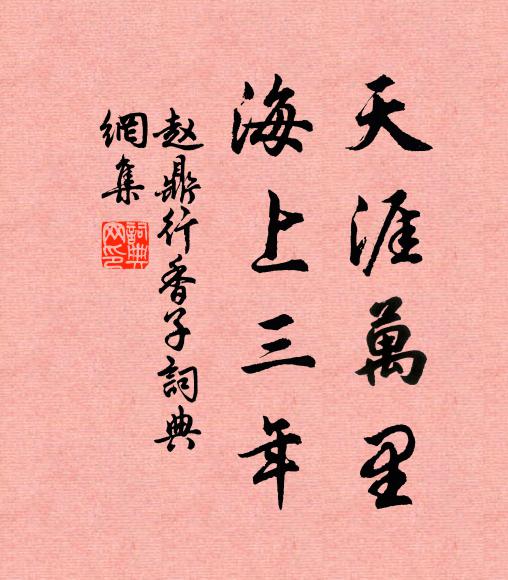 天涯萬里
海上三年
赵鼎行香子詞典
網集
詞典
网印